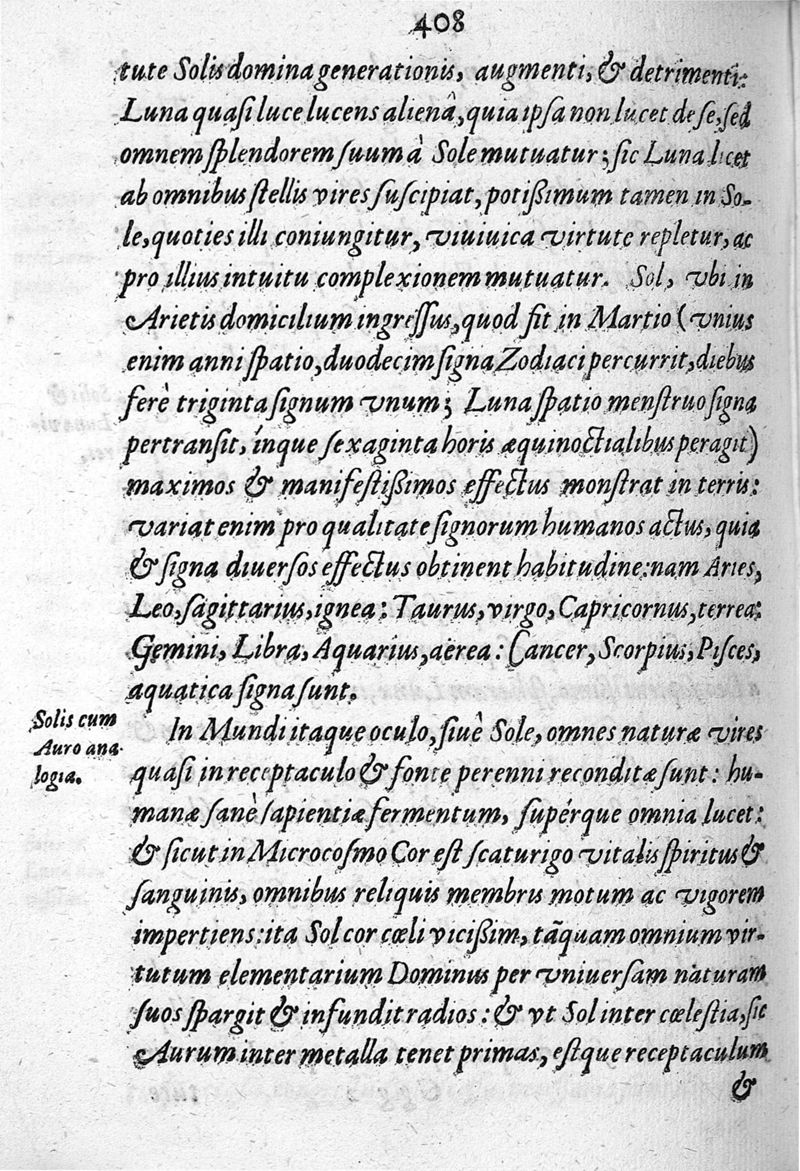 408
tute Solis domina generationis, augmenti, & detrimenti:
Luna quasi luce lucens alienâ, quia ipsa non lucet de se, sed
omnem splendorem suum à Sole mutuatur; sic Luna licet
ab omnibus stellis vires suscipiat, potißimum tamen in So-
le, quoties illi coniungitur, viuiuica virtute repletur, ac
pro illius intuitu complexionem mutuatur. Sol, vbi in
Arietis domicilium ingressus, quod fit in Martio (vnius
enim anni spatio, duodecim signa Zodiaci percurrit, diebus
ferè triginta signum vnum; Luna spatio menstruo signa
pertransit, ínque sexaginta horis æquinoctialibus peragit)
maximos & manifestißimos effectus monstrat in terris:
variat enim pro qualitate signorum humanos actus, quia
& signa diuersos effectus obtinent habitudine: nam Aries,
Leo, sagittarius, ignea: Taurus, virgo, Capricornus, terrea:
Gemini, Libra, Aquarius, aërea: Cancer, Scorpius, Pisces,
aquatica signa sunt.
Solis cum
Auro ana-
logia.
In Mundi itaque oculo, siuè Sole, omnes naturæ vires
quasi in receptaculo & fonte perenni reconditæ sunt: hu-
manæ sanè sapientiæ fermentum, supérque omnia lucet:
& sicut in Microcosmo Cor est scaturigo vitalis spiritus &
sanguinis, omnibus reliquis membris motum ac vigorem
impertiens: ita Sol cor cœli vicißim, tãquam omnium vir-
tutum elementarium Dominus per vniuersam naturam
suos spargit & infundit radios: & vt Sol inter cœlestia, sic
Aurum inter metalla tenet primas, estque receptaculum
&